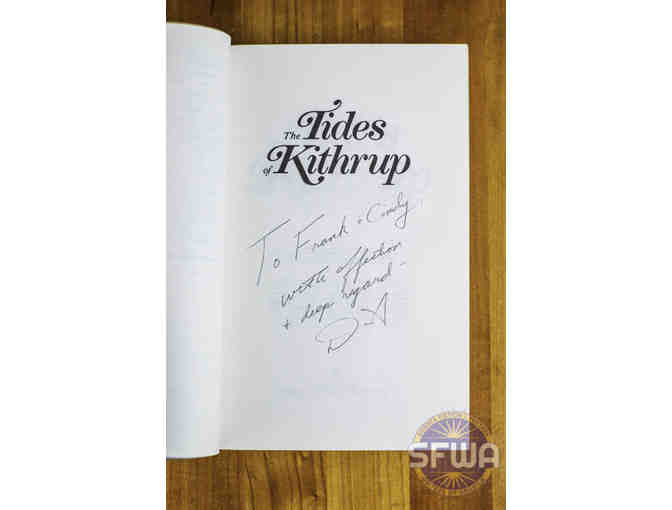 The Tides
of Kithrup
To Frank + Cindy,
with affection
+ deep regard -
SFWA